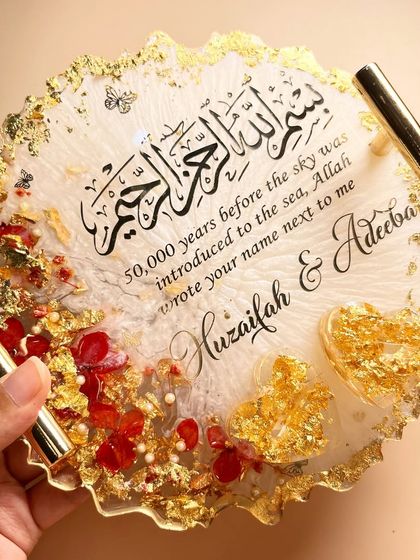 بسم الله الرحمن الرحيم
50,000 years before the sky was
introduced to the sea, Allah
wrote your name next to me
Huzaifah & Adeeba